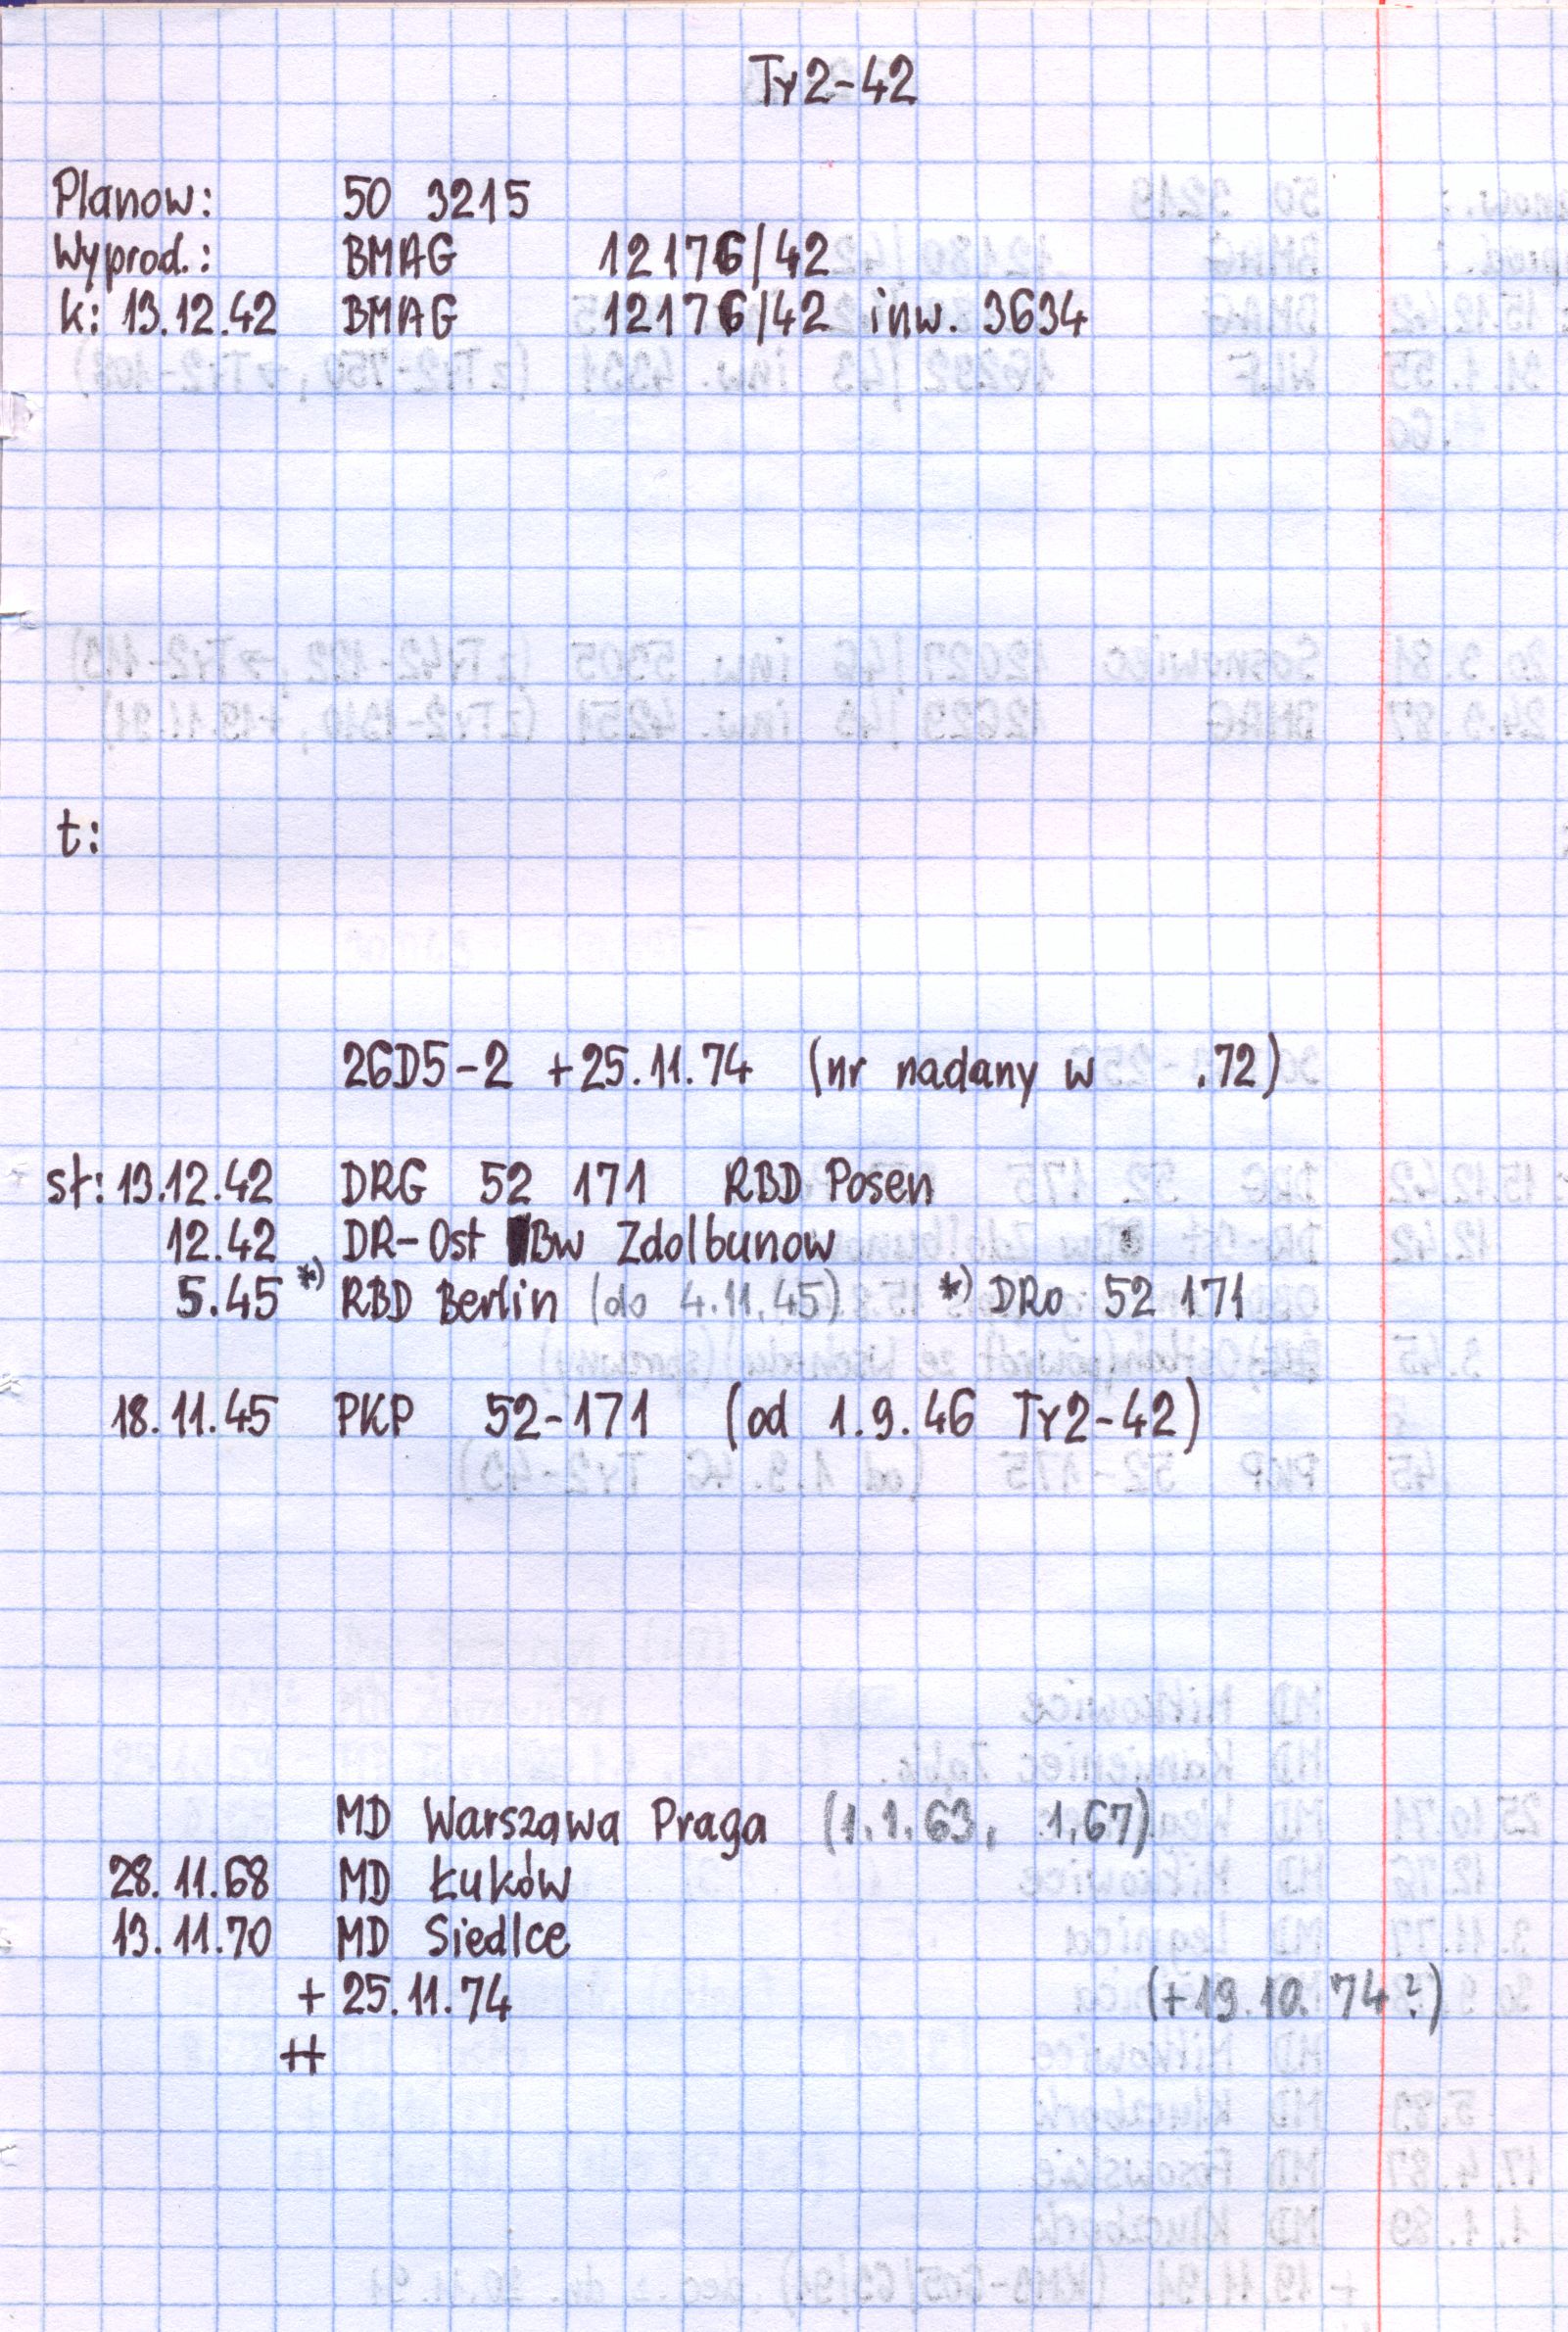 Ty2-42
Planow: 50 3215
Wyprod.: BMAG 12176/42
k: 13.12.42 BMAG 12176/42 inw. 3634
t:
26D5-2 +25.11.74 (nr nadany w .72)
st: 13.12.42 DRG 52 171 RBD Posen
12.42 DR-Ost Bw Zdolbunow
5.45 *) RBD Berlin (do 4.11.45) *) DRo 52 171
18.11.45 PKP 52-171 (od 1.9.46 Ty2-42)
MD Warszawa Praga (1.1.63, 1.67)
28.11.68 MD Łuków
13.11.70 MD Siedlce
+ 25.11.74 (+19.10.74?)
++